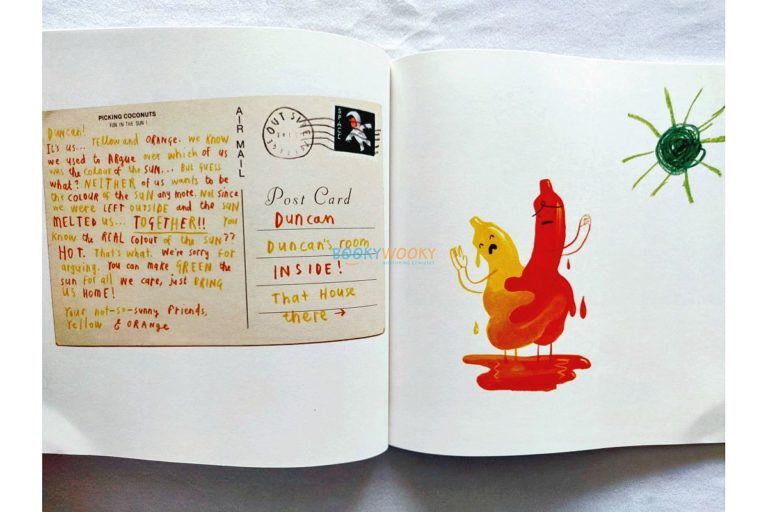 PICKING COCONUTS
FUN IN THE SUN!
Duncan!
It's us... Yellow and ORANGE. We know
we used to ARGUE over which of us
was the colour of the SUN... But guess
what? NEITHER of us wants to be
the colour of the sun any more. Not since
we were LEFT OUTSIDE and the SUN
MELTED us... TOGETHER!! You
know the REAL colour of the SUN??
HOT. That's what. We're sorry for
arguing. You can make GREEN the
sun for all we care, just BRING
US HOME!
Your not-so-sunny friends,
Yellow & ORANGE
AIR MAIL
SPACE
Post Card
Duncan
Duncan's room
INSIDE!
That House
there →
BOOKYWOOKY